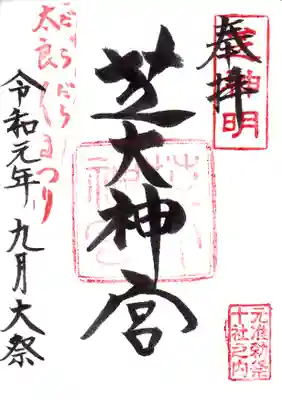 奉拝
神明
芝大神宮
元准勅祭
十社之内
だらだら
太良〱まつり
令和元年九月大祭